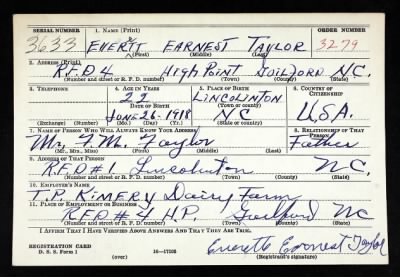 SERIAL NUMBER 1. NAME (Print) ORDER NUMBER
3633 EVERETT EARNEST TAYLOR 3279
(First) (Middle) (Last)
2. ADDRESS (Print)
R.F.D 4 High Point Guilford N.C.
(Number and street or R. F. D. number) (Town) (County) (State)
3. TELEPHONE 4. AGE IN YEARS 5. PLACE OF BIRTH 6. COUNTRY OF CITIZENSHIP
22 LINCOLINTON
DATE OF BIRTH (Town or county)
26-1918 NC U.S.A.
(Exchange) (Number) (Mo.) (Day) (Yr.) (State or country)
7. NAME OF PERSON WHO WILL ALWAYS KNOW YOUR ADDRESS 8. RELATIONSHIP OF THAT PERSON
Mr. F. M. Taylor Father
(Mr., Mrs., Miss) (First) (Middle) (Last)
9. ADDRESS OF THAT PERSON
R.F.D #1 Lincolnton NC.
(Number and street or R. F. D. number) (Town) (County) (State)
10. EMPLOYER'S NAME
KIMERY Dairy Farm
11. PLACE OF EMPLOYMENT OR BUSINESS
R.F.D #4 H.P. Guilford NC
(Number and street or R. F. D. number) (Town) (County) (State)
I AFFIRM THAT I HAVE VERIFIED ABOVE ANSWERS AND THAT THEY ARE TRUE.
REGISTRATION CARD
D. S. S. Form 1 (over) 16—17105 Everette Earnest Taylor
(Registrant's signature)